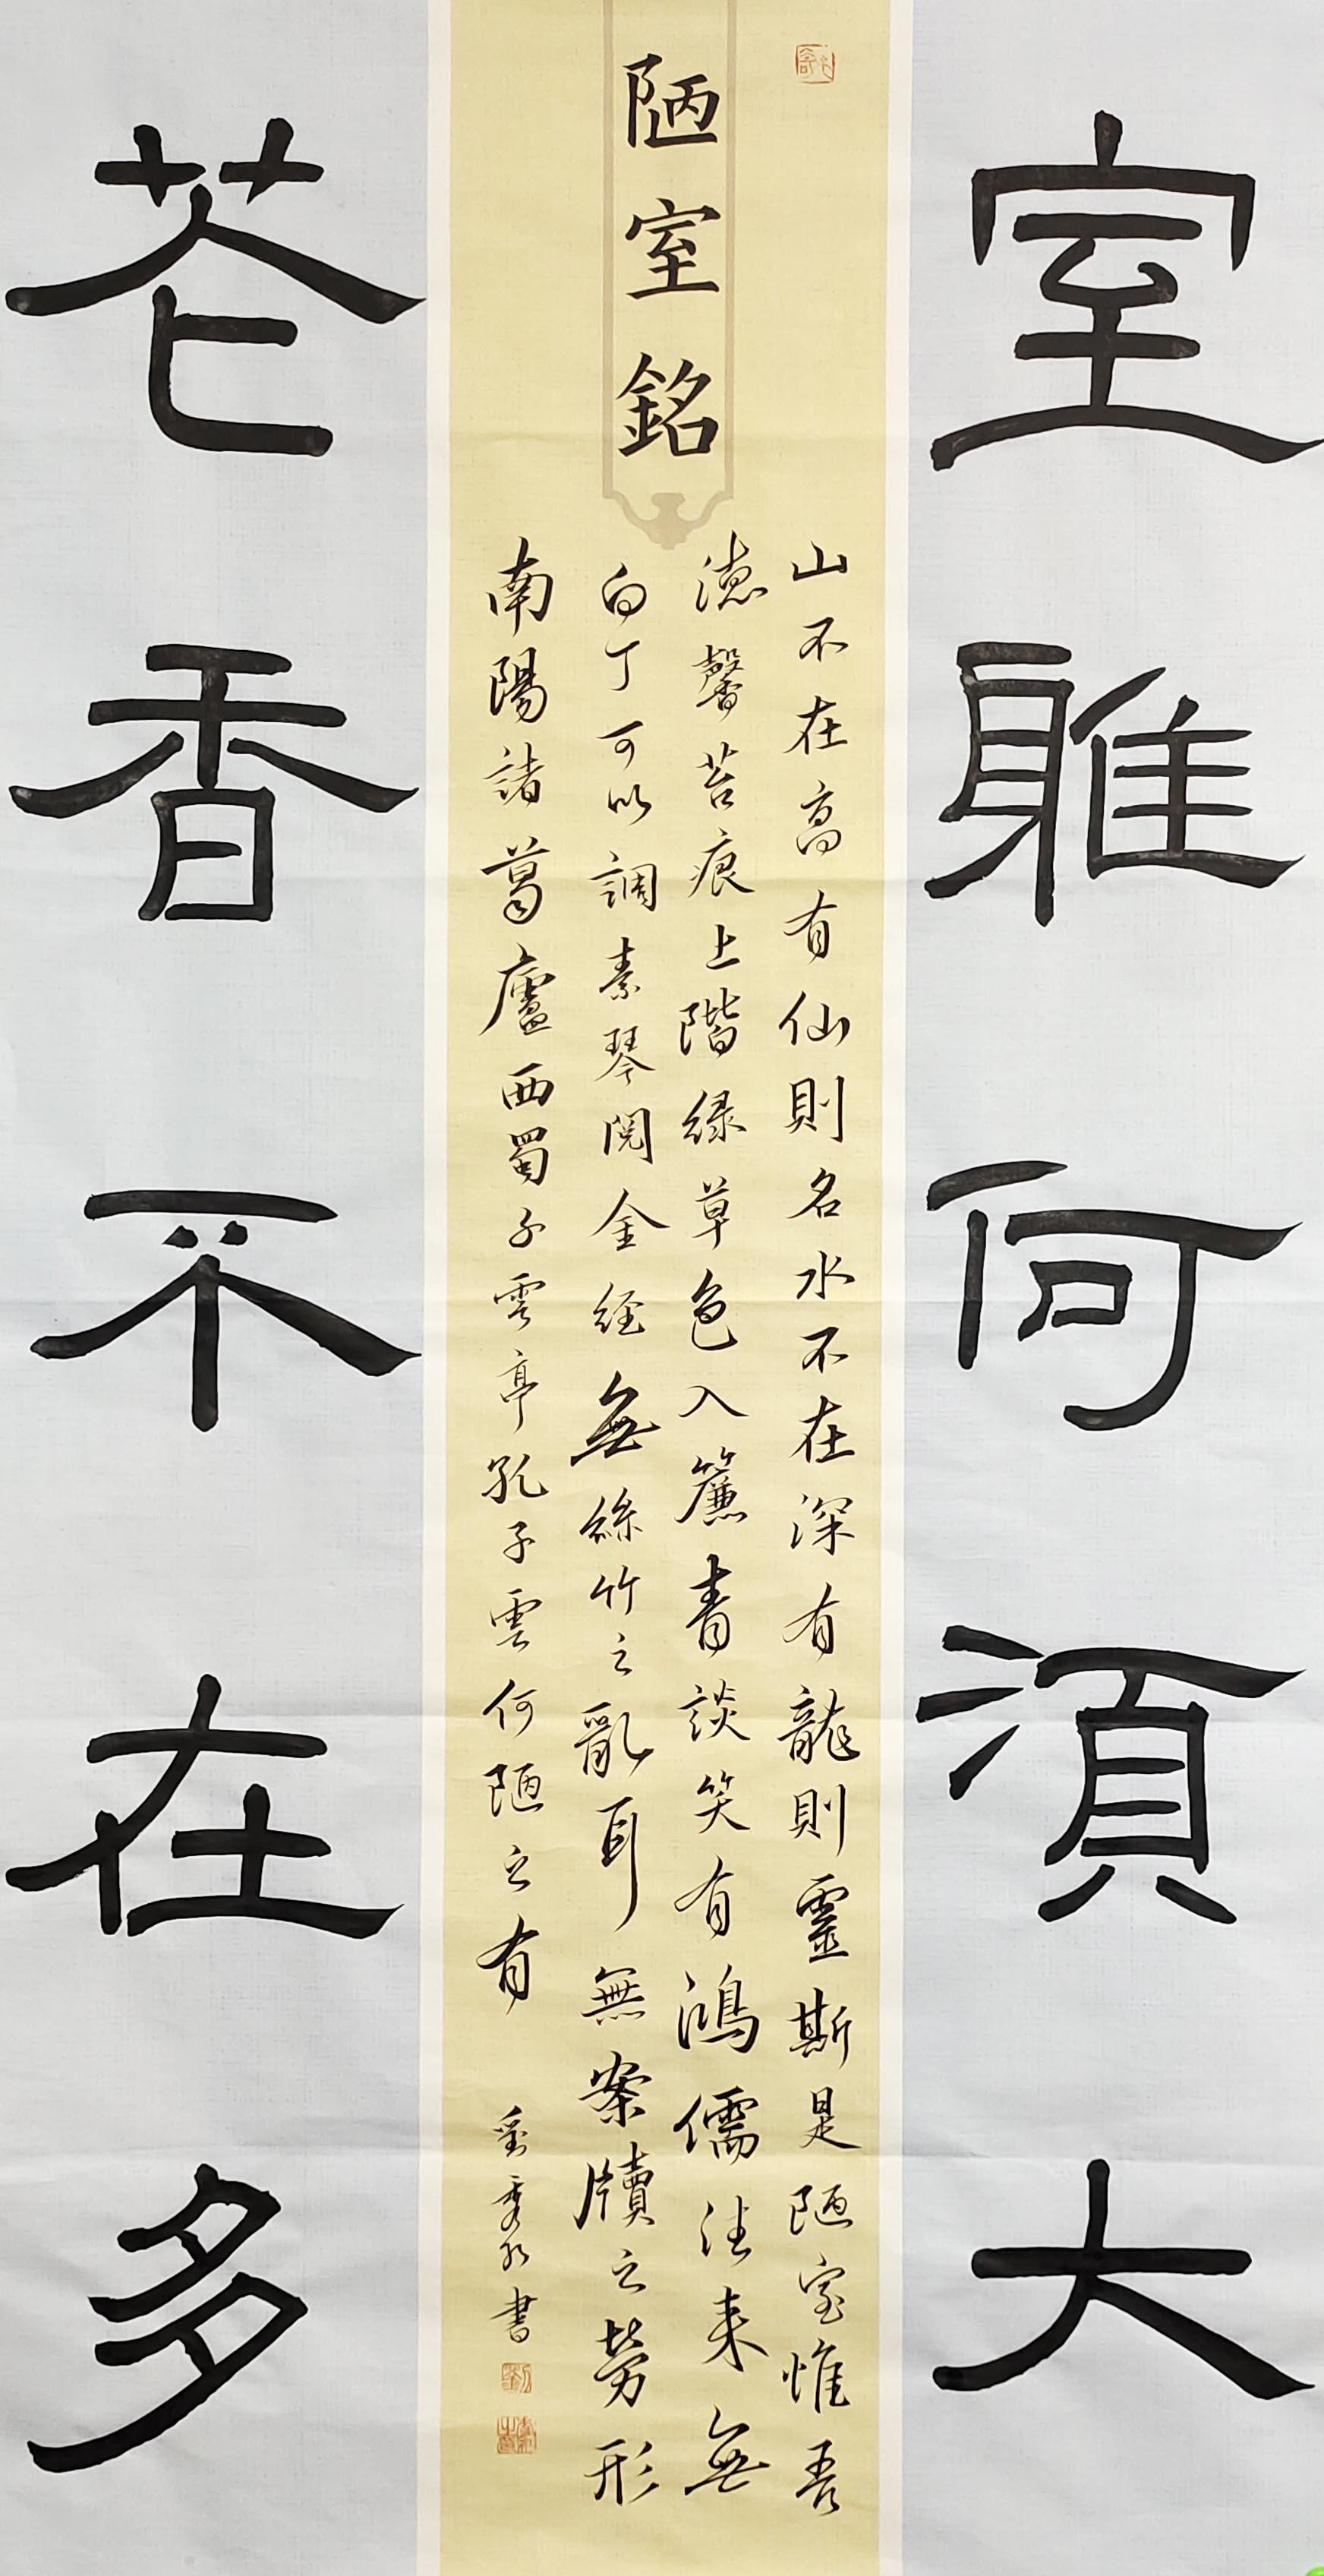 室雅何須大
陋室銘
山不在高有仙則名水不在深有龍則靈斯是陋室惟吾
德馨苔痕上階緑草色入簾青談笑有鴻儒往来無
白丁可以調素琴閲金經無絲竹之亂耳無案牘之勞形
南陽諸葛廬西蜀子雲亭孔子雲何陋之有
劉秀書
花香不在多